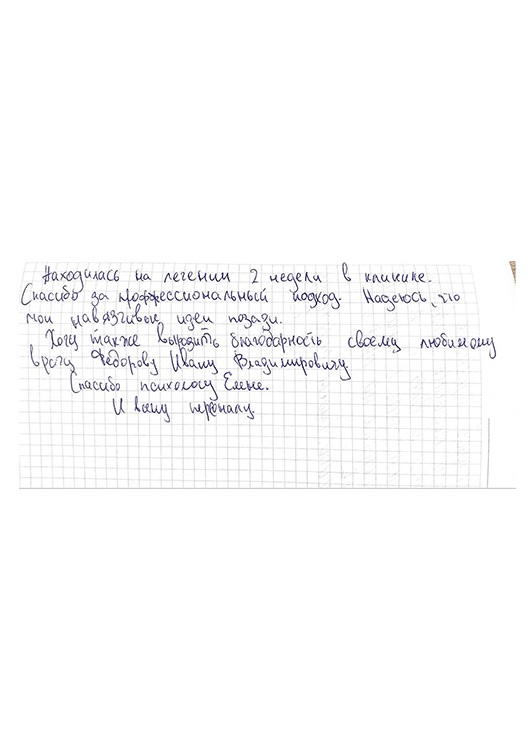 Находилась на лечении 2 недели в клинике.
Спасибо за проффессиональный подход. Надеюсь, что
мои навязчивые идеи позади.
Хочу также выразить благодарность своему любимому
врачу Федорову Ивану Владимировичу.
Спасибо психологу Елене.
И всему персоналу.